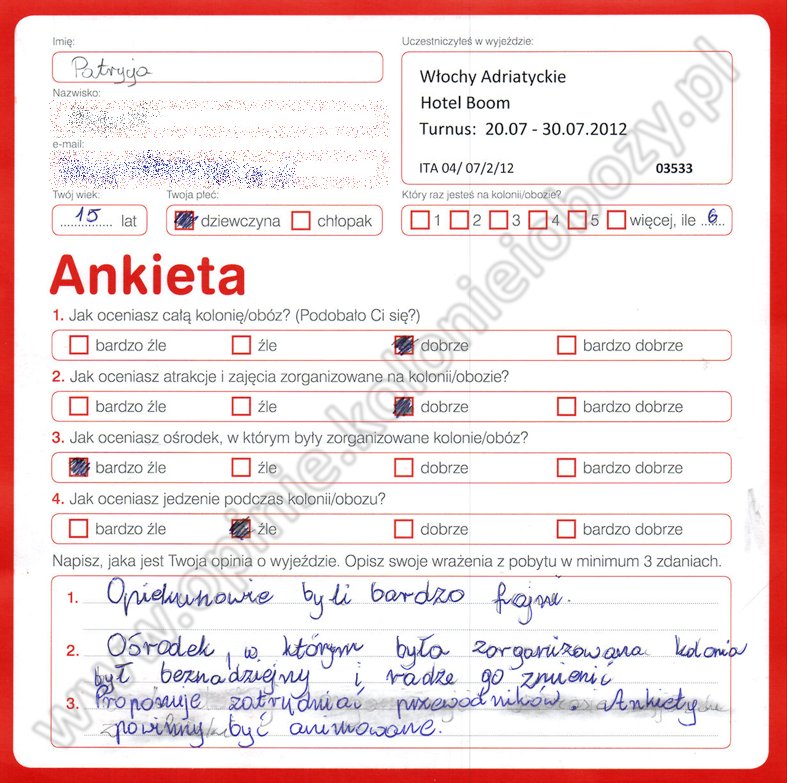 Imię:
Patrycja
Uczestniczyłeś w wyjeździe:
Włochy Adriatyckie
Hotel Boom
Turnus: 20.07 - 30.07.2012
ITA 04/ 07/2/12 03533
Nazwisko:
e-mail:
Twój wiek:
15 lat
Twoja płeć:
dziewczyna chłopak
Który raz jesteś na kolonii/obozie?
1 2 3 4 5 więcej, ile 6
Ankieta
1. Jak oceniasz całą kolonię/obóz? (Podobało Ci się?)
bardzo źle źle dobrze bardzo dobrze
2. Jak oceniasz atrakcje i zajęcia zorganizowane na kolonii/obozie?
bardzo źle źle dobrze bardzo dobrze
3. Jak oceniasz ośrodek, w którym były zorganizowane kolonie/obóz?
bardzo źle źle dobrze bardzo dobrze
4. Jak oceniasz jedzenie podczas kolonii/obozu?
bardzo źle źle dobrze bardzo dobrze
Napisz, jaka jest Twoja opinia o wyjeździe. Opisz swoje wrażenia z pobytu w minimum 3 zdaniach.
1. Opiekunowie byli bardzo fajni.
2. Ośrodek, w którym była zorganizowana kolonia
był beznadziejny i radze go zmienić
3. Proponuje zatrudniać przewodników. Ankiety
powinny być animowane.
www.opinie.kolonieiobozy.pl